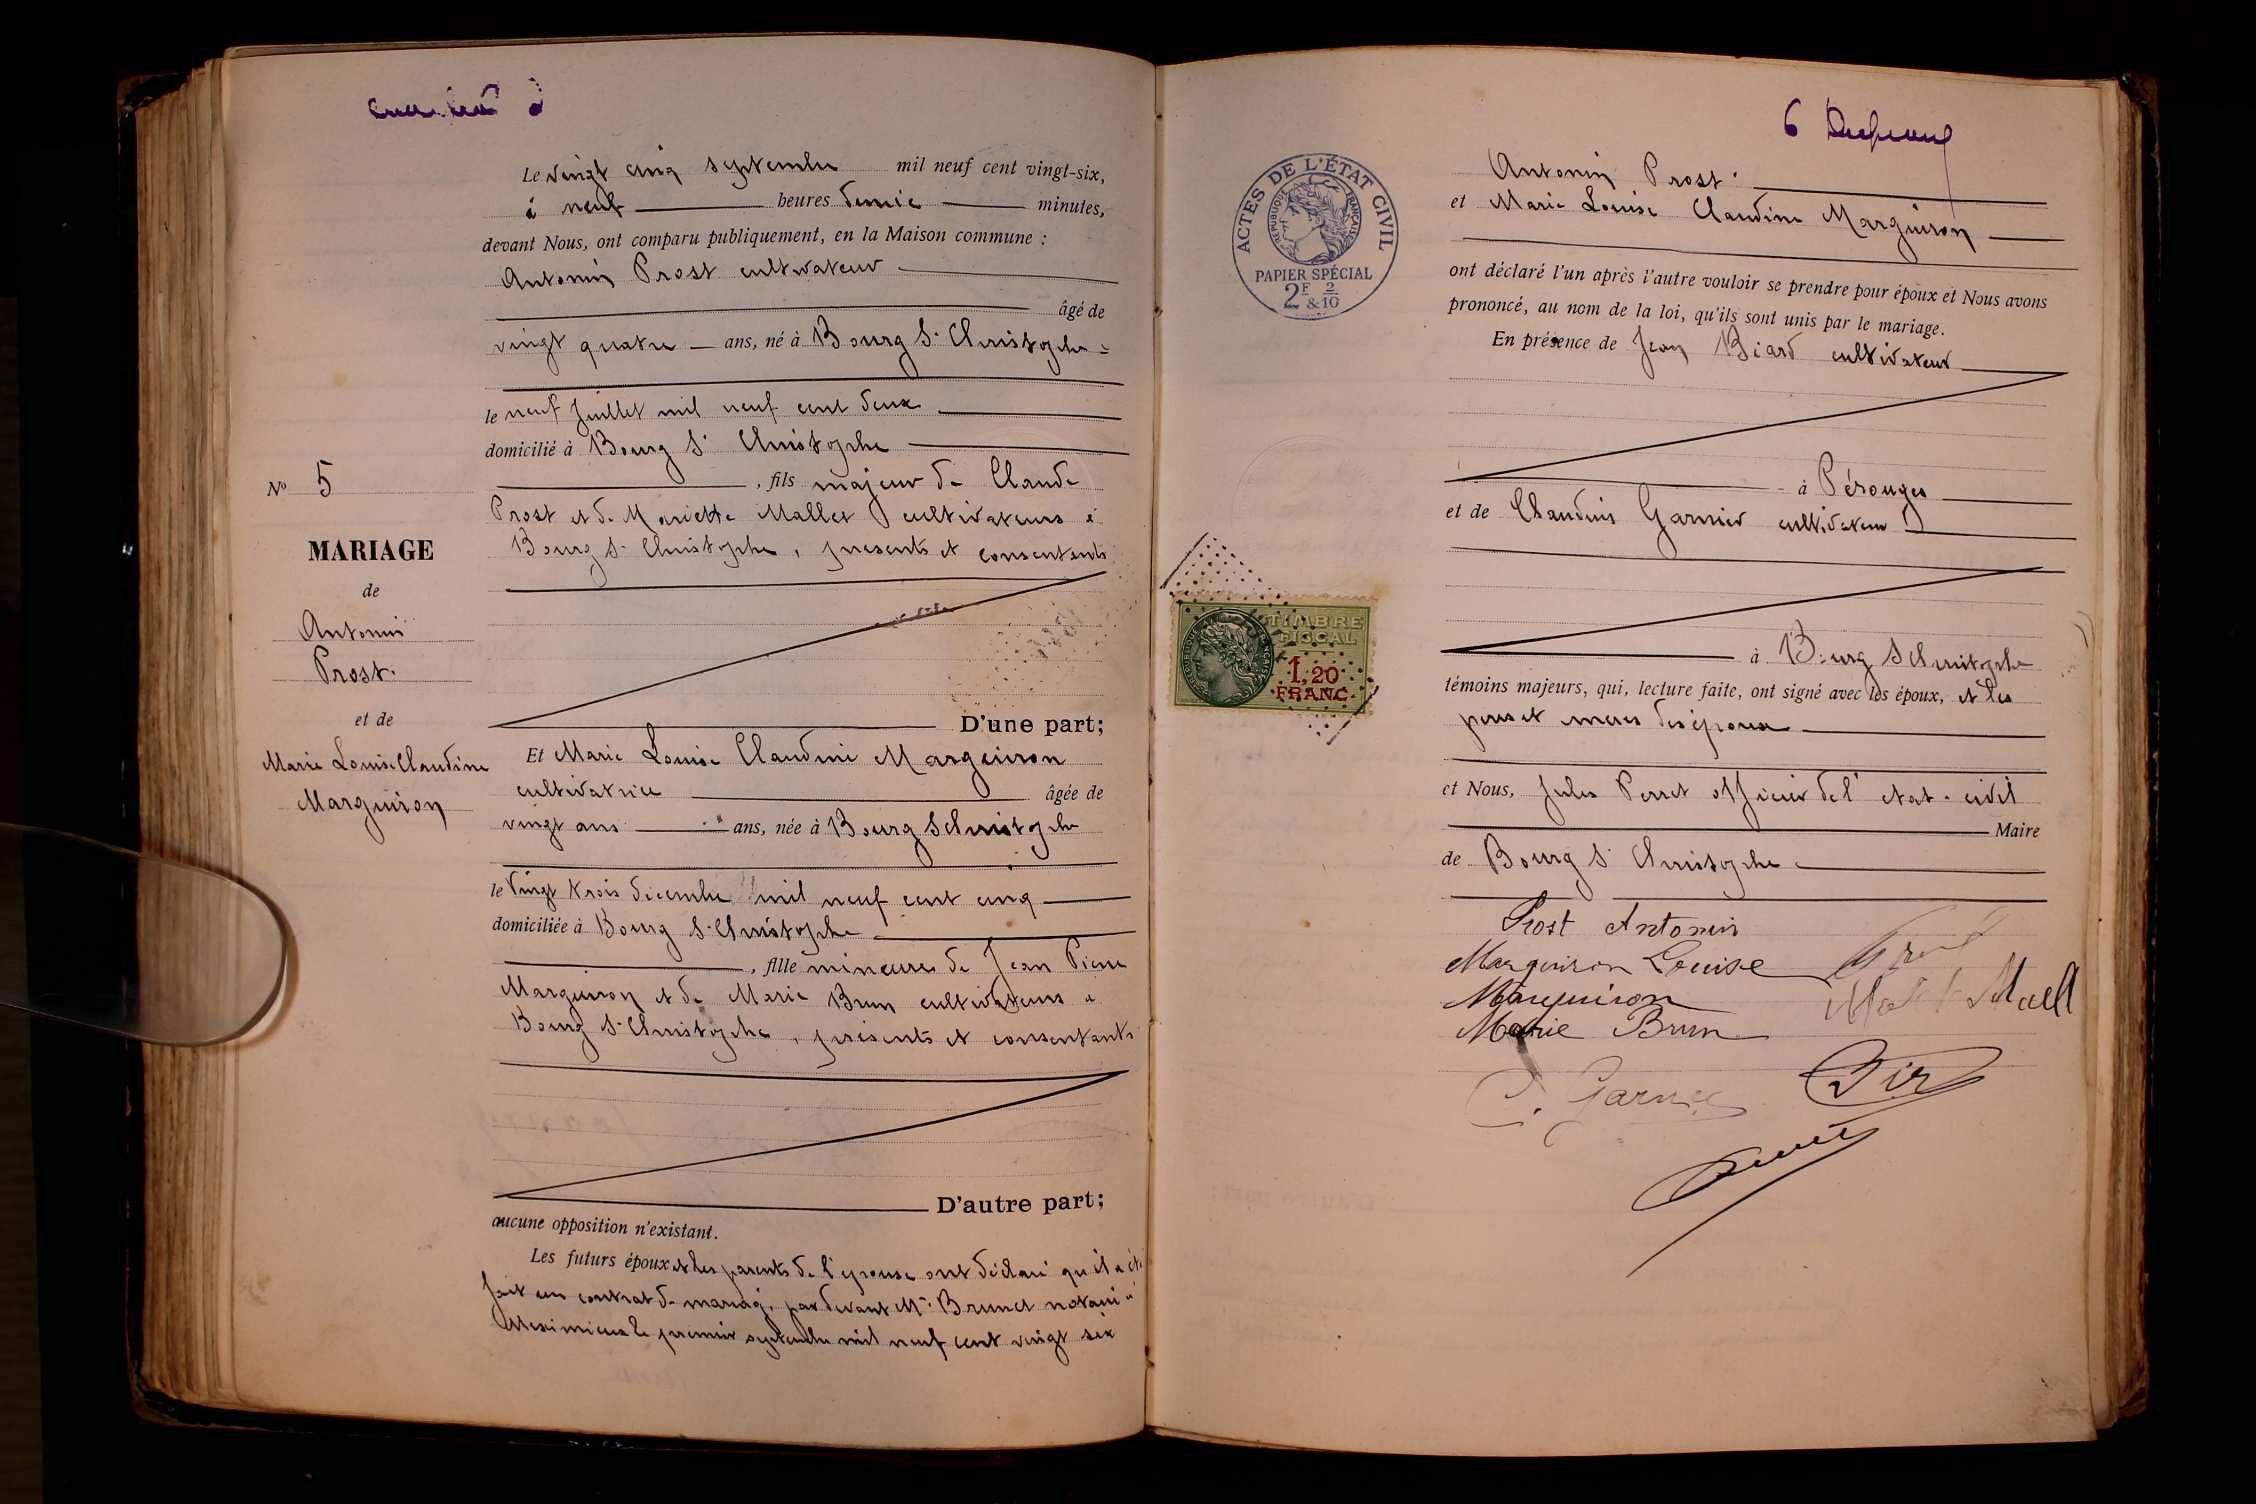 Le vingt cinq septembre mil neuf cent vingt-six,
à neuf heures demie minutes,
devant Nous, ont comparu publiquement, en la Maison commune :
Antonin Prost cultivateur
âgé de
vingt quatre ans, né à Bourg St Christophe
le neuf Juillet mil neuf cent deux
domicilié à Bourg St Christophe
, fils majeur de Claude
Prost et de Mariette Mallet cultivateurs à
Bourg St Christophe, présents et consentants
D'une part;
Et Marie Louise Claudine Marguiron
cultivatrice âgée de
vingt ans ans, née à Bourg St Christophe
le vingt trois décembre mil neuf cent cinq
domiciliée à Bourg St Christophe
, fille mineure de Jean Pierre
Marguiron et de Marie Brun cultivateurs à
Bourg St Christophe, présents et consentants
D'autre part;
aucune opposition n'existant.
Les futurs époux et les parents de l'épouse ont déclaré qu'il a été
fait un contrat de mariage par devant Me Brunet notaire à
Meximieux le premier septembre mil neuf cent vingt six
No 5
MARIAGE
de
Antonin
Prost.
et de
Marie Louise Claudine
Marguiron
6
ACTES DE L'ÉTAT CIVIL
RÉPUBLIQUE FRANÇAISE
PAPIER SPÉCIAL
2F & 2/10
Antonin Prost.
et Marie Louise Claudine Marguiron
ont déclaré l'un après l'autre vouloir se prendre pour époux et Nous avons
prononcé, au nom de la loi, qu'ils sont unis par le mariage.
En présence de Jean Biard cultivateur
à Pérouges
et de Claudius Garnier cultivateur
à Bourg St Christophe
témoins majeurs, qui, lecture faite, ont signé avec les époux, et les
pères et mères des époux
et Nous, Jules Perret officier de l'état-civil
Maire
de Bourg St Christophe
TIMBRE
FISCAL
1,20
FRANC
Prost Antonin
Marguiron Louise
Marguiron
Marie Brun
C. Garnier